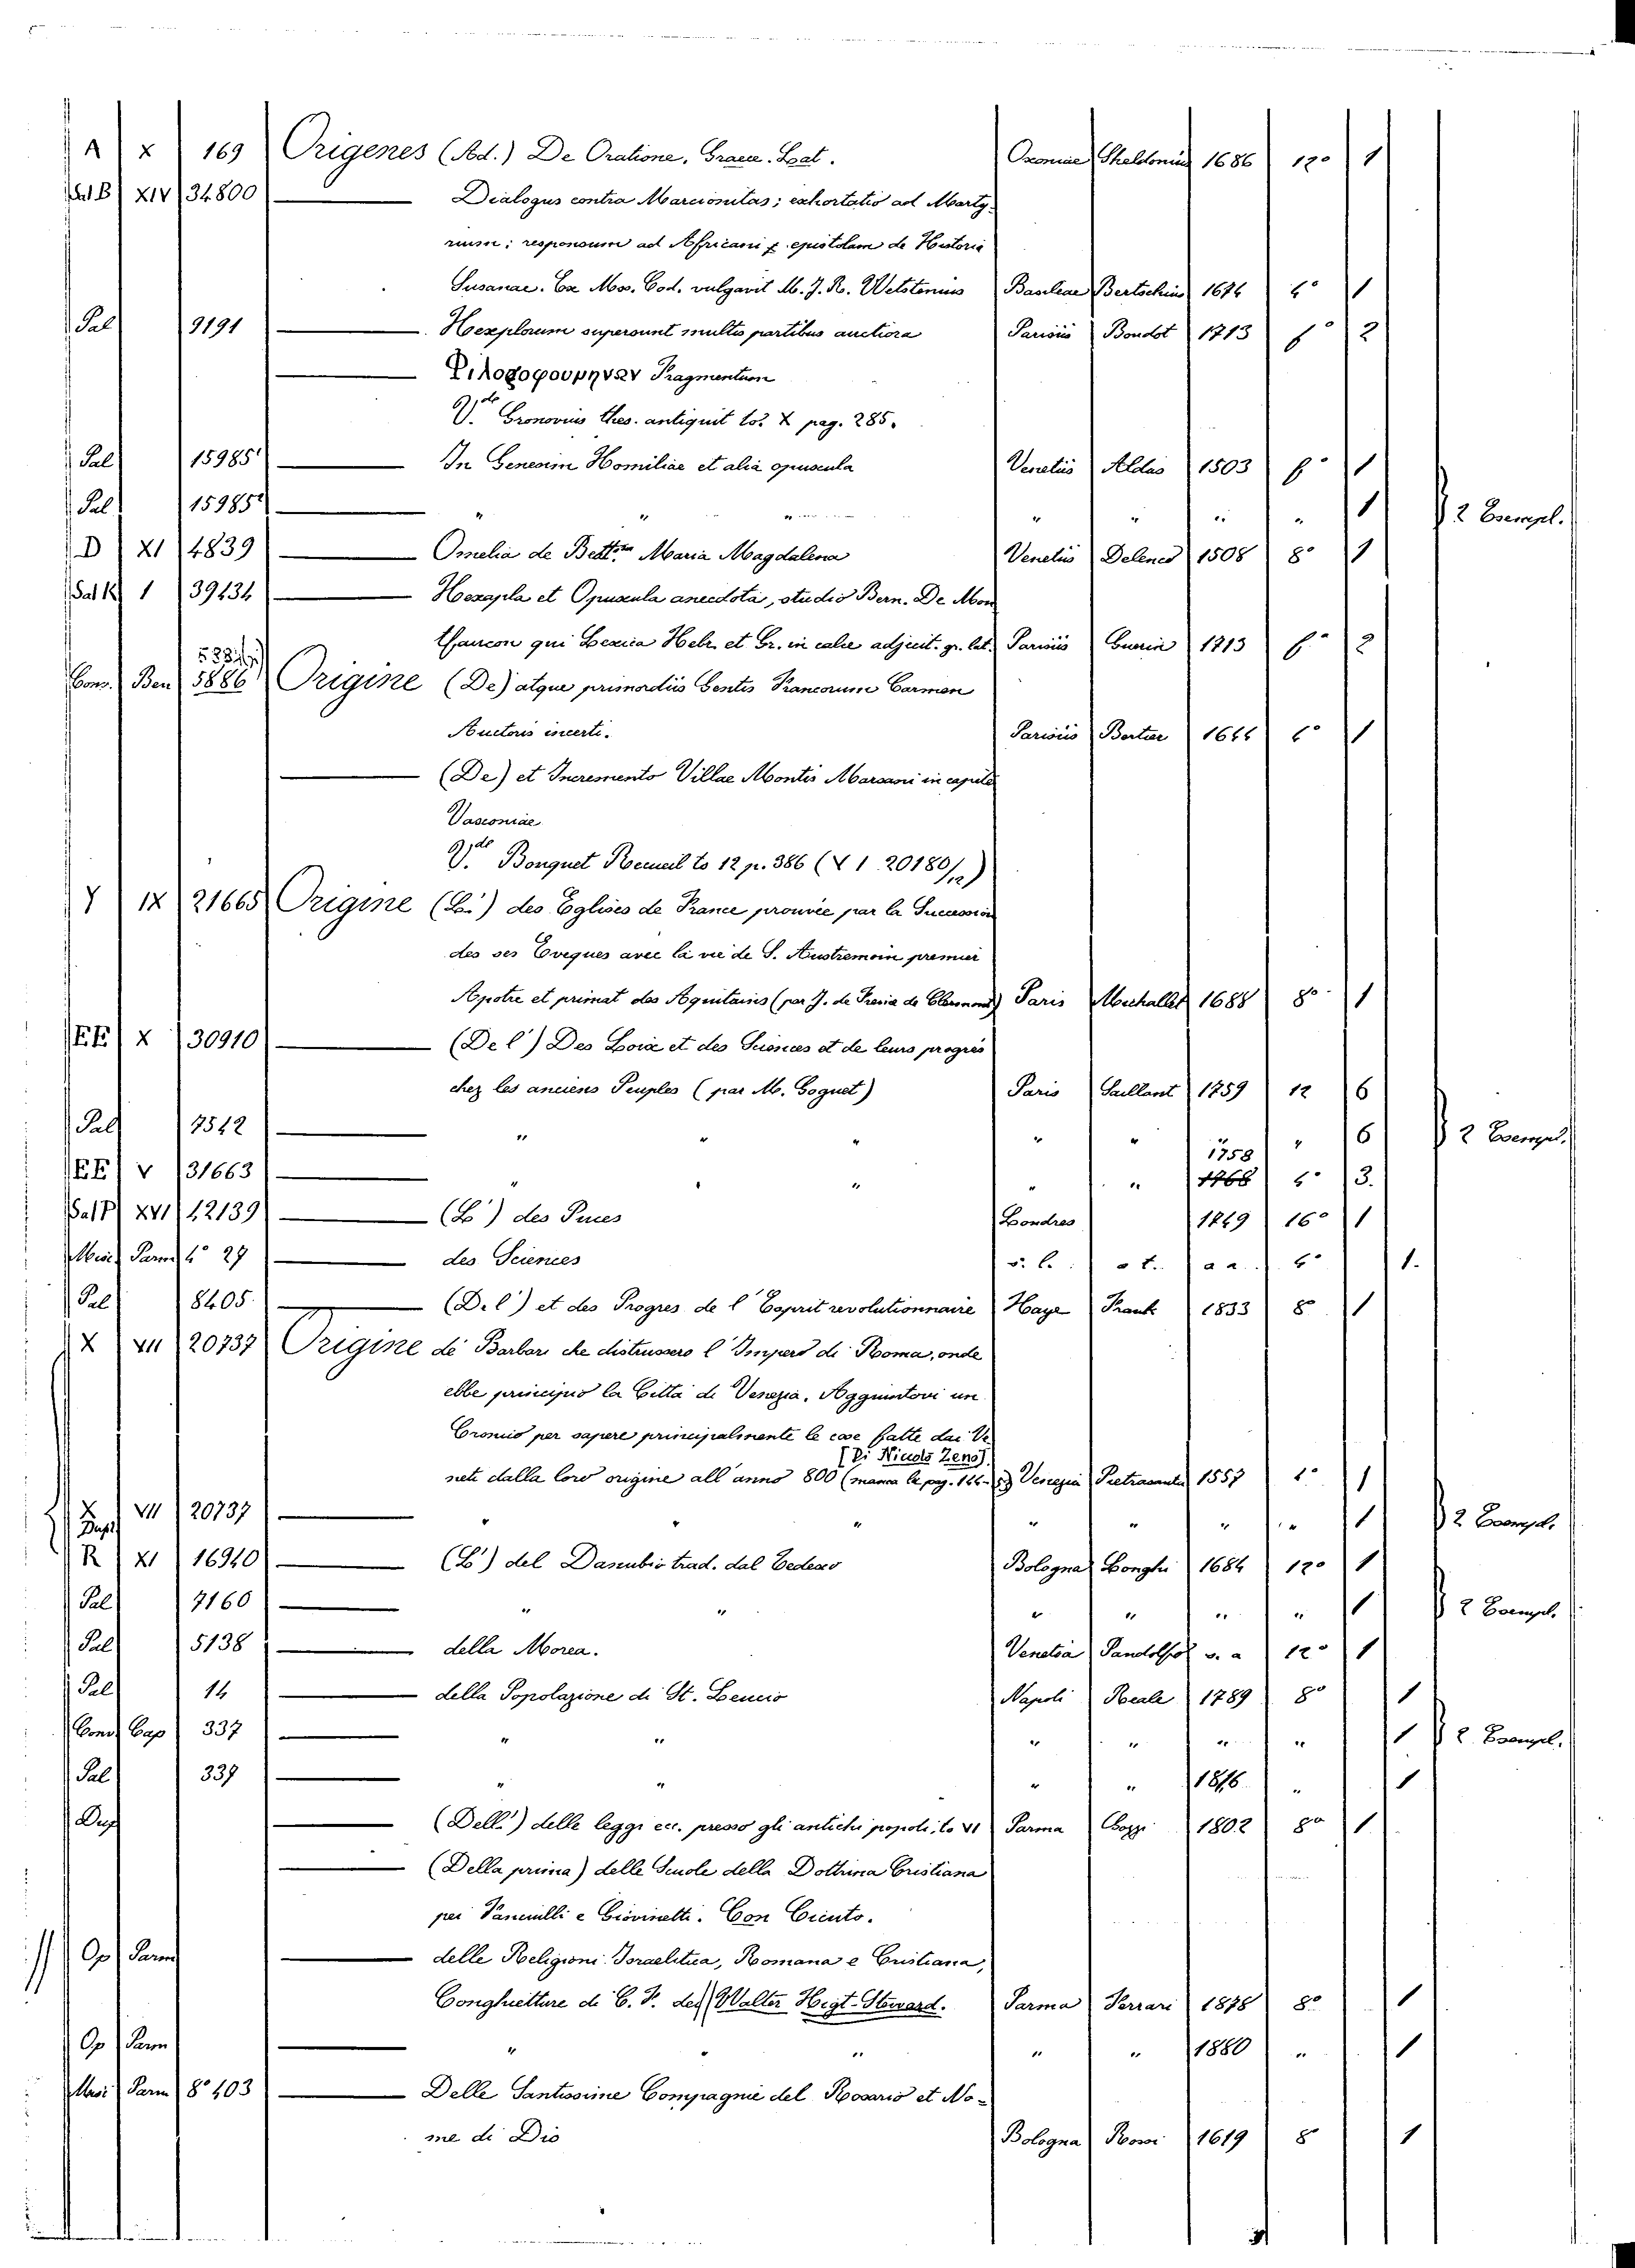 A X 169 Origenes (Ad.) De Oratione. Graece. Lat. Oxoniae Sheldonius 1686 12° 1
Sal B XIV 34800 Dialogus contra Marcionitas; exhortatio ad Marty-
rium; responsum ad Africani epistolam de Historia
Susanae. Ex Mss. Cod. vulgavit M. J. R. Wetstenius Basileae Bertschius 1674 4° 1
Pal 9191 Hexaplorum supersunt multis partibus auctiora Parisiis Boudot 1713 f° 2
Fragmentum
V.de Gronovius thes. antiquit to. X pag. 285.
Pal 15985 In Genesim Homiliae et alia opuscula Venetiis Aldus 1503 f° 1
Pal 15985² " " " " " " " 1 2 Esempl.
D XI 4839 Omelia de Beat.ma Maria Magdalena Venetiis Delenco 1508 8° 1
Sal K 1 39434 Hexapla et Opuscula anecdota, studio Bern. De Mon
tfaucon qui Lexica Hebr. et Gr. in calce adjecit. gr. lat. Parisiis Guerin 1713 f° 2
Cons. Ben 5886 Origine (De) atque primordiis Gentis Francorum Carmen
Auctoris incerti. Parisiis Bertier 1644 4° 1
(De) et Incremento Villae Montis Marsani in capite
Vasconiae
V.de Bouquet Recueil to 12 p. 386 (Y 1 20180/12)
Y IX 21665 Origine (L') des Eglises de France prouvée par la Succession
des ses Eveques avec la vie de S. Austremoin premier
Apotre et primat des Aquitains (par J. de Clermont) Paris Michallet 1688 8° 1
EE X 30910 (De l') Des Loix et des Sciences et de leurs progrès
chez les anciens Peuples (par M. Goguet) Paris Saillant 1759 12 6
Pal 7542 " " " " " 1758 " 6 2 Esempl.
EE V 31663 " " " " " 1768 4° 3.
Sal P XVI 42139 (L') des Puces Londres 1749 16° 1
Misc. Parm 4° 27 des Sciences s. l. s t. a a. 4° 1.
Pal 8405 (De l') et des Progres de l'Esprit revolutionnaire Haye Frank 1833 8° 1
X VII 20737 Origine de Barbari che distrussero l'Impero di Roma, onde
ebbe principio la Città di Venezia. Aggiuntovi un
Cronico per sapere principalmente le cose fatte dai Ve
[Di Nicolò Zeno]
neti dalla loro origine all'anno 800 Venezia Pietrasanta 1557 4° 1
X Dupl VII 20737 " " " " " " " 1 2 Esempl.
R XI 16940 (L') del Danubio trad. dal Tedesco Bologna Longhi 1684 12° 1
Pal 7160 " " " " " " 1 2 Esempl.
Pal 5138 della Morea. Venetia Pandolfo s. a 12° 1
Pal 14 della Popolazione di St. Leucio Napoli Reale 1789 8° 1
Cons Cap 337 " " " " " " 1 2 Esempl.
Pal 339 " " " " 1816 " 1
Dup (Dell') delle leggi ecc. presso gli antichi popoli, to VI Parma 1802 8° 1
(Della prima) delle Scuole della Dottrina Cristiana
pei Fanciulli e Giovinetti. Con Cicuto.
Op Parm delle Religioni Israelitica, Romana e Cristiana,
Conghietture di C. F. del Walter Higt-Steward. Parma Ferrari 1878 8° 1
Op Parm " " " " " 1880 " 1
Misc Parm 8° 403 Delle Santissime Compagnie del Rosario et No-
me di Dio Bologna Rossi 1619 8° 1